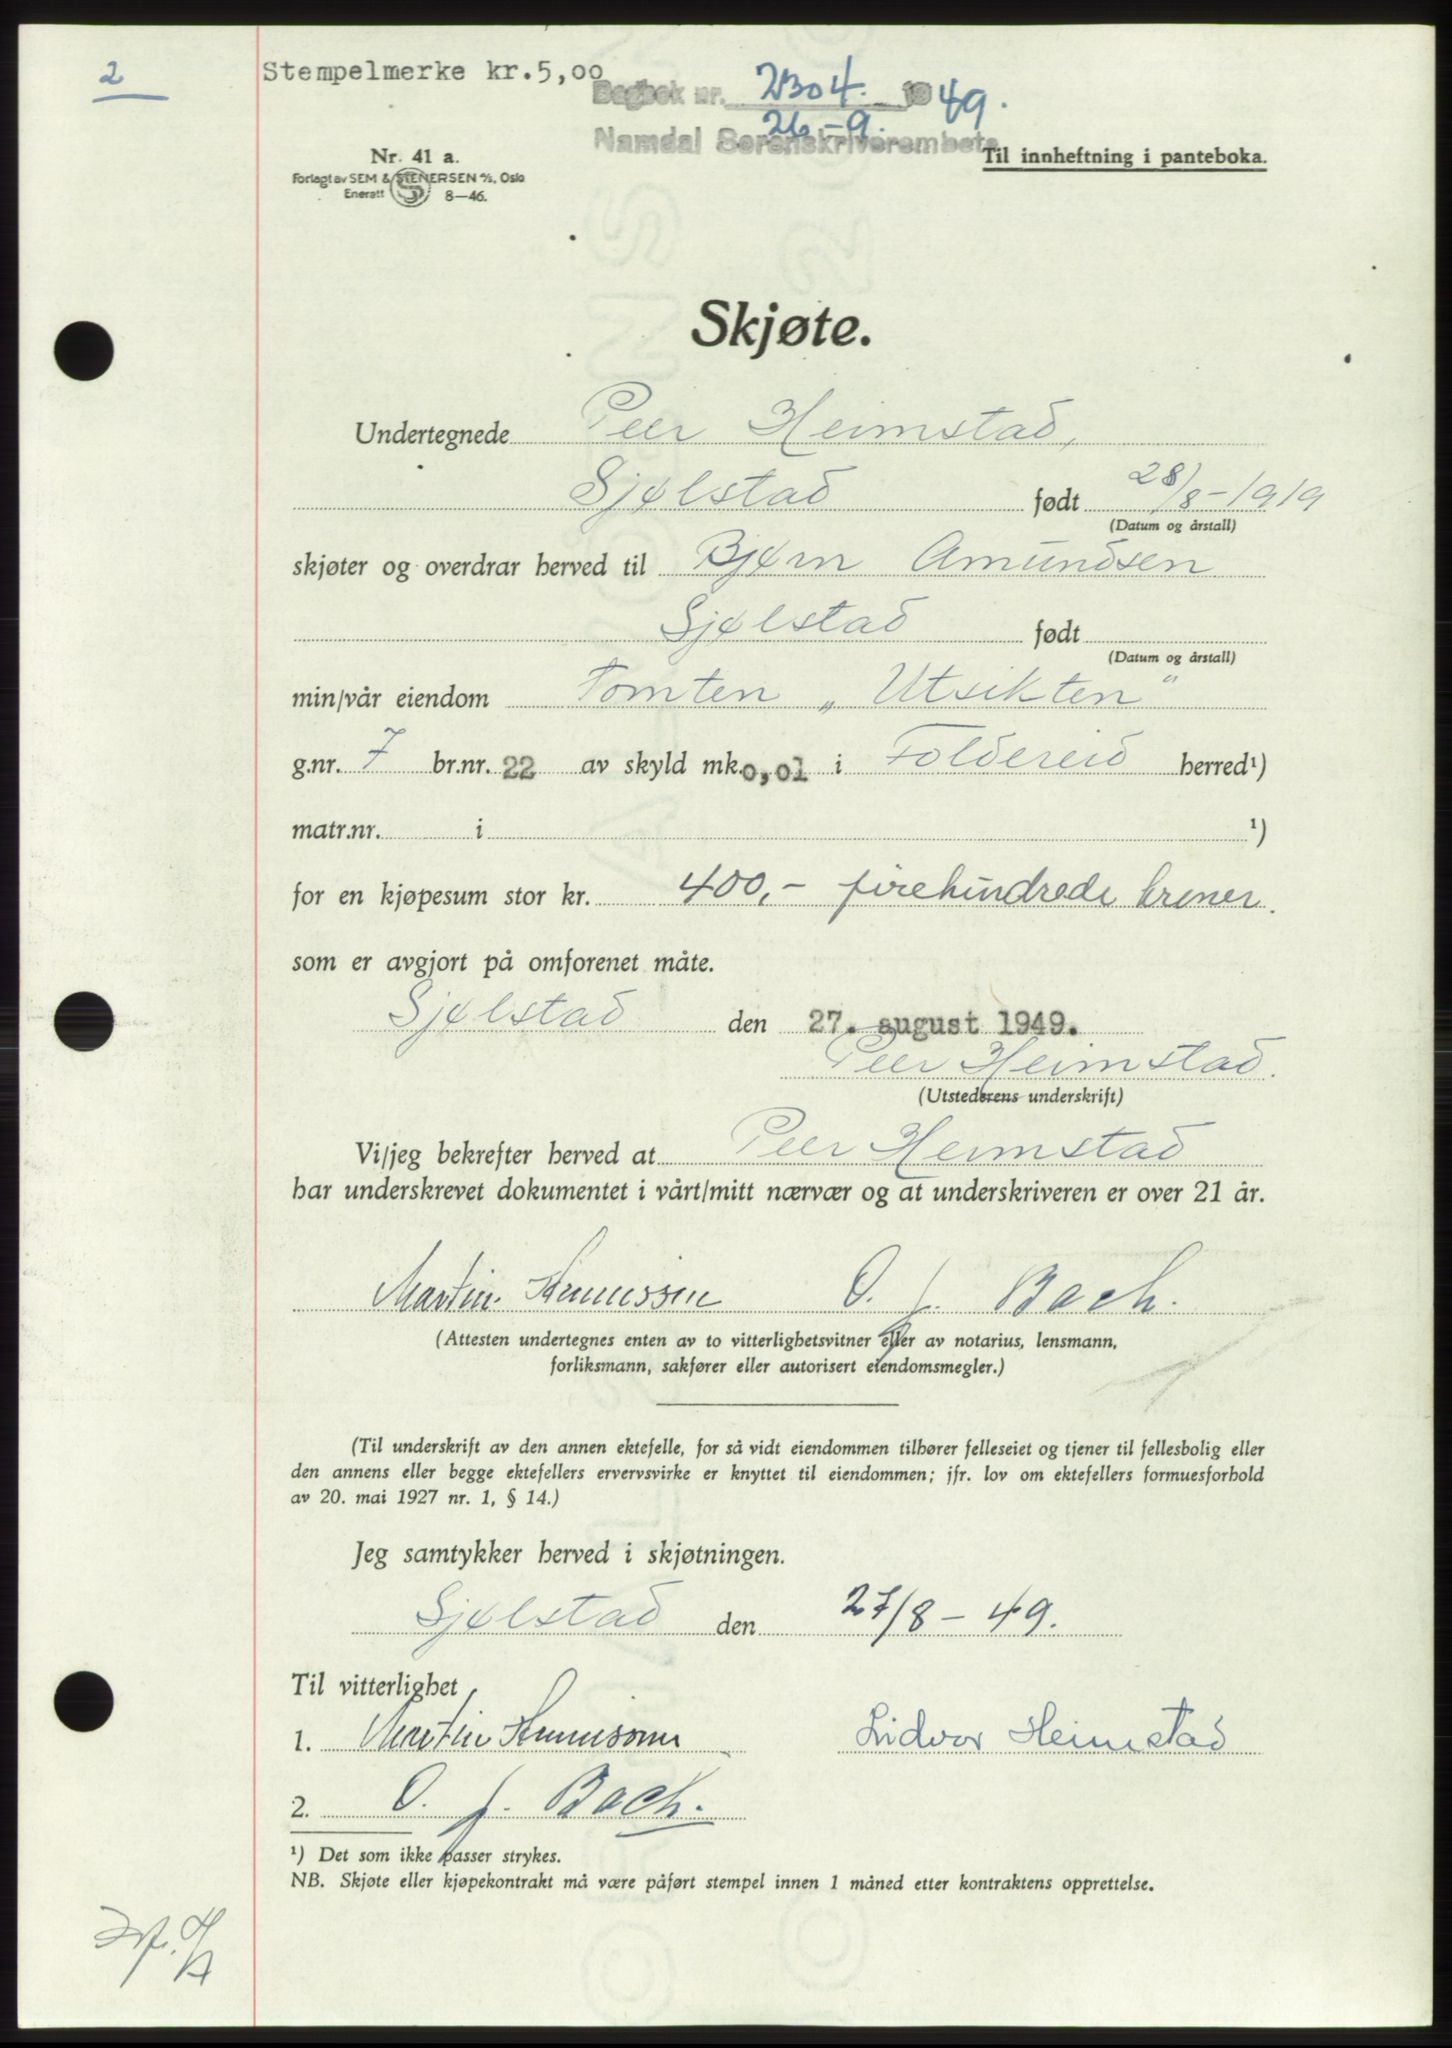 2
Stempelmerke kr.5,00
Dagbok nr. 2304. 1949.
26-9.
Namdal Sorenskriverembete
Nr. 41 a.
Til innheftning i panteboka.
Forlagt av SEM & STENERSEN A/S, Oslo
Enerett 8—46.
Skjøte.
Undertegnede Peer Heimstad,
Sjølstad født 28/8-1919
(Datum og årstall)
skjøter og overdrar herved til Bjørn Amundsen
Sjølstad født
(Datum og årstall)
min/vår eiendom Tomten „Utsikten"
g.nr. 7 br.nr. 22 av skyld mk. 0,01 i Foldereid herred¹)
matr.nr. i ¹)
for en kjøpesum stor kr. 400,- firehundrede kroner.
som er avgjort på omforenet måte.
Sjølstad den 27. august 1949.
Peer Heimstad.
(Utstederens underskrift)
Vi/jeg bekrefter herved at Peer Heimstad
har underskrevet dokumentet i vårt/mitt nærvær og at underskriveren er over 21 år.
Martin O. J. Bach.
(Attesten undertegnes enten av to vitterlighetsvitner eller av notarius, lensmann,
forliksmann, sakfører eller autorisert eiendomsmegler.)
(Til underskrift av den annen ektefelle, for så vidt eiendommen tilhører felleseiet og tjener til fellesbolig eller
den annens eller begge ektefellers ervervsvirke er knyttet til eiendommen; jfr. lov om ektefellers formuesforhold
av 20. mai 1927 nr. 1, § 14.)
Jeg samtykker herved i skjøtningen.
Sjølstad den 27/8-49.
Til vitterlighet
1. Martin Lidvor Heimstad
2. O. J. Bach.
¹) Det som ikke passer strykes.
NB. Skjøte eller kjøpekontrakt må være påført stempel innen 1 måned etter kontraktens opprettelse.